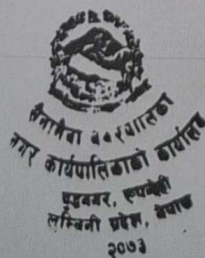 सैनामैना नगरपालिका
नगर कार्यपालिकाको कार्यालय
बुद्धनगर, रूपन्देही
लुम्बिनी प्रदेश, नेपाल
२०७३